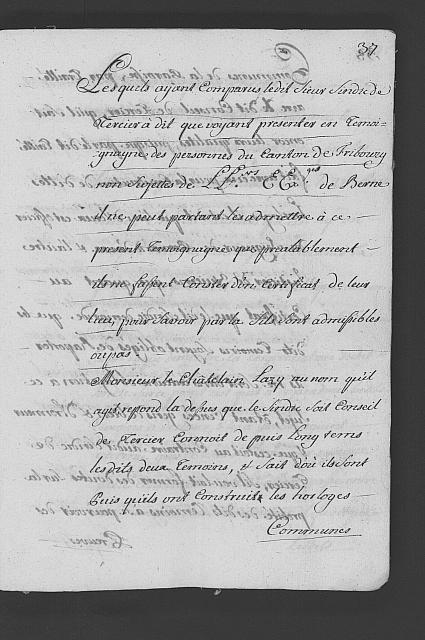 37
Lesquels ayant Comparus ledit Sieur Sindic de
Tercier à dit que voyant presenter en Temoi-
gnagne des personnes du Canton de Fribourg
non Sujettes de LL. EE. de Berne
il ne peut partant les admettre à ce
present Temoignagne que préalablement
ils ne fasent Conster d'un Certificat de leur
lieu, pour Savoir par la S'ils sont admissibles
ou pas.
Monsieur le Châtelain Lazy au nom qu'il
agit repond la desus que le Sindic Soit Conseil
de Tercier Conooit de puis Long tems
les dits deux Temoins, & Sait d'où ils Sont
Puis qu'ils ont Construit les horloges
Communes